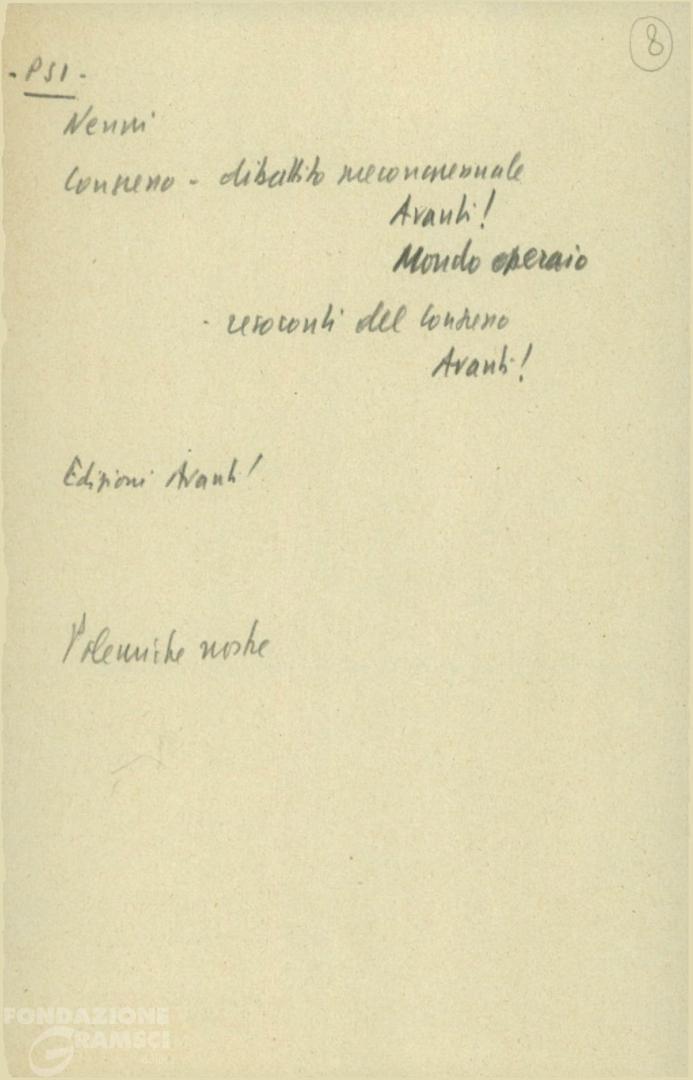 8
- PSI -
Nenni
Congresso - dibattito precongressuale
Avanti!
Mondo operaio
- resoconti del Congresso
Avanti!
Edizioni Avanti!
Polemiche nostre
FONDAZIONE
GRAMSCI